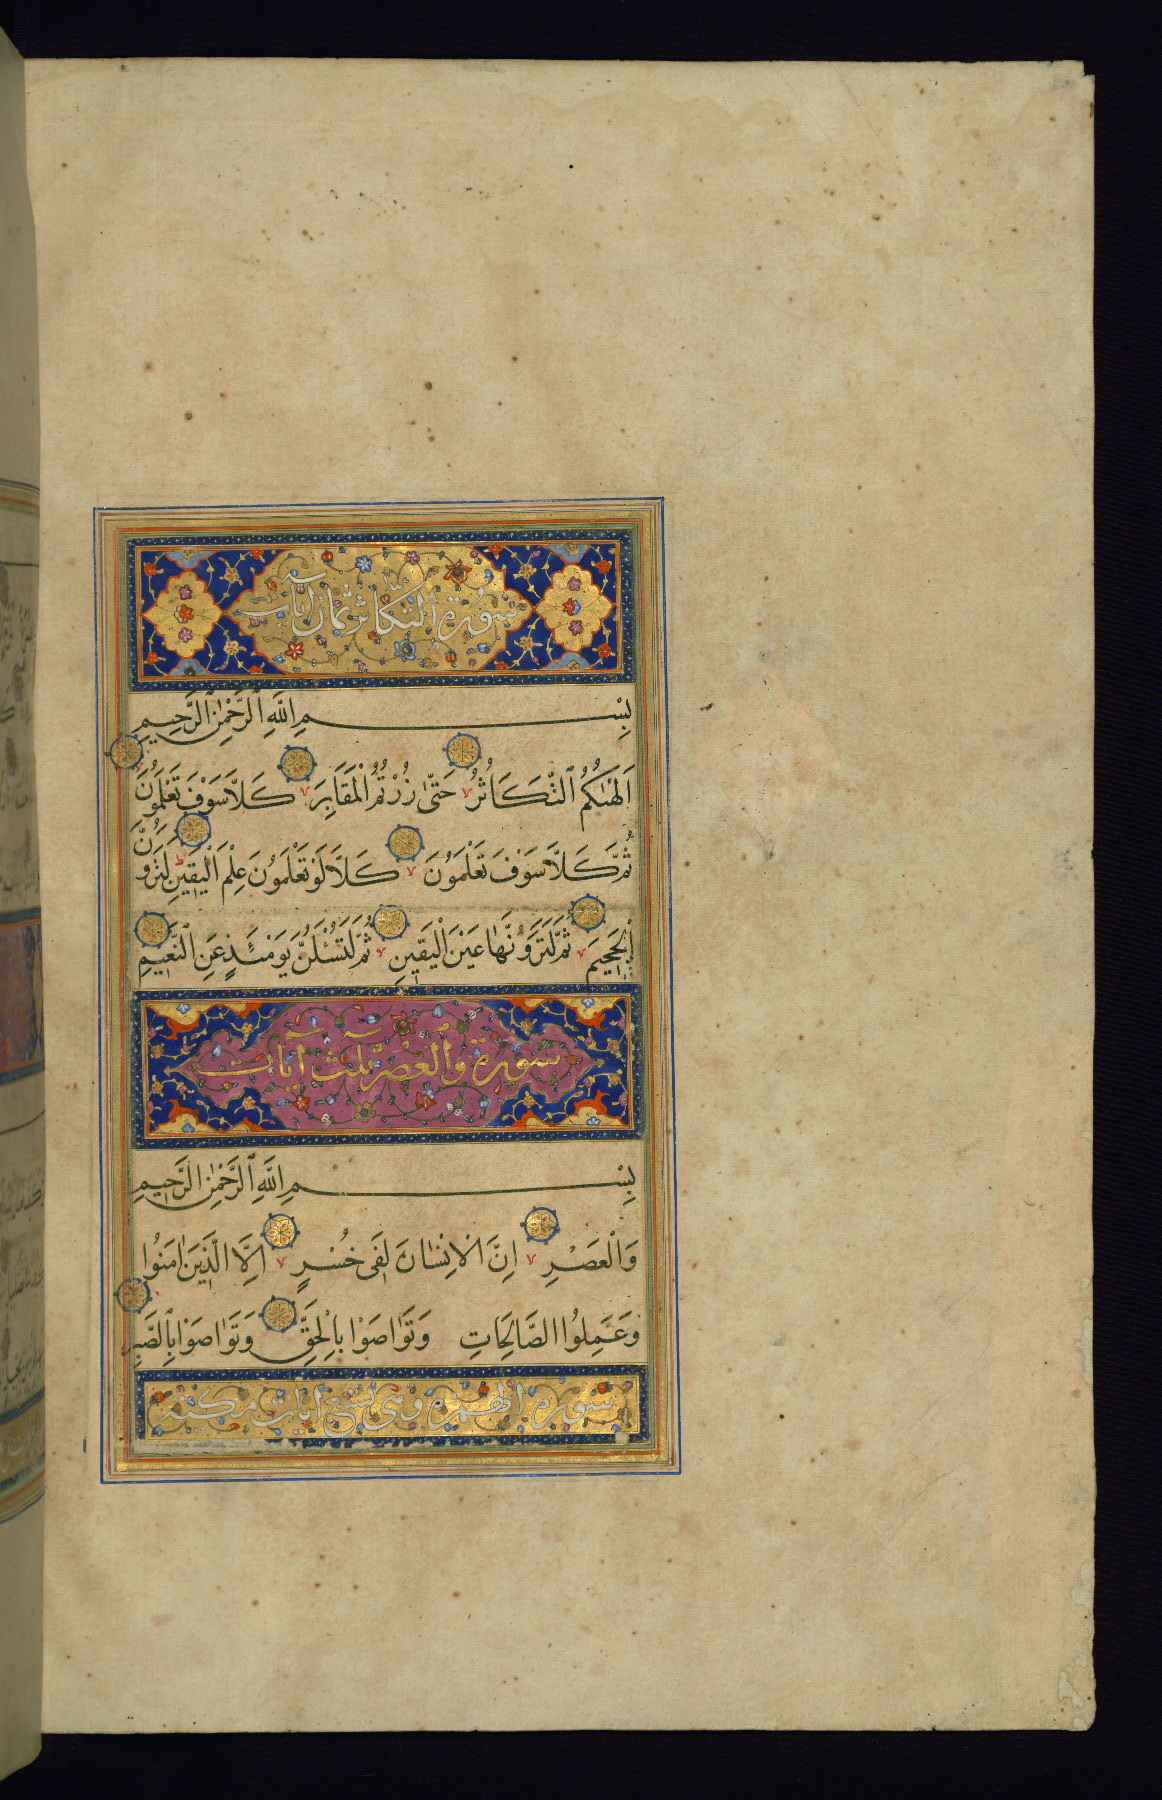 سورة التكاثر ثمان آيات
بِسْمِ اللَّهِ الرَّحْمٰنِ الرَّحِيمِ
اَلْهٰيكُمُ التَّكَاثُرُ حَتّٰى زُرْتُمُ الْمَقَابِرَ كَلَّا سَوْفَ تَعْلَمُونَ
ثُمَّ كَلَّا سَوْفَ تَعْلَمُونَ كَلَّا لَوْ تَعْلَمُونَ عِلْمَ الْيَقِينِ لَتَرَوُنَّ
الْجَحِيمَ ثُمَّ لَتَرَوُنَّهَا عَيْنَ الْيَقِينِ ثُمَّ لَتُسْئَلُنَّ يَوْمَئِذٍ عَنِ النَّعِيمِ
سورة والعصر ثلث آيات
بِسْمِ اللَّهِ الرَّحْمٰنِ الرَّحِيمِ
وَالْعَصْرِ اِنَّ الْاِنْسَانَ لَفِى خُسْرٍ اِلَّا الَّذِينَ اٰمَنُوا
وَعَمِلُوا الصَّالِحَاتِ وَتَوَاصَوْا بِالْحَقِّ وَتَوَاصَوْا بِالصَّبْرِ
سورة الهمزة وهى تسع آيات مكية